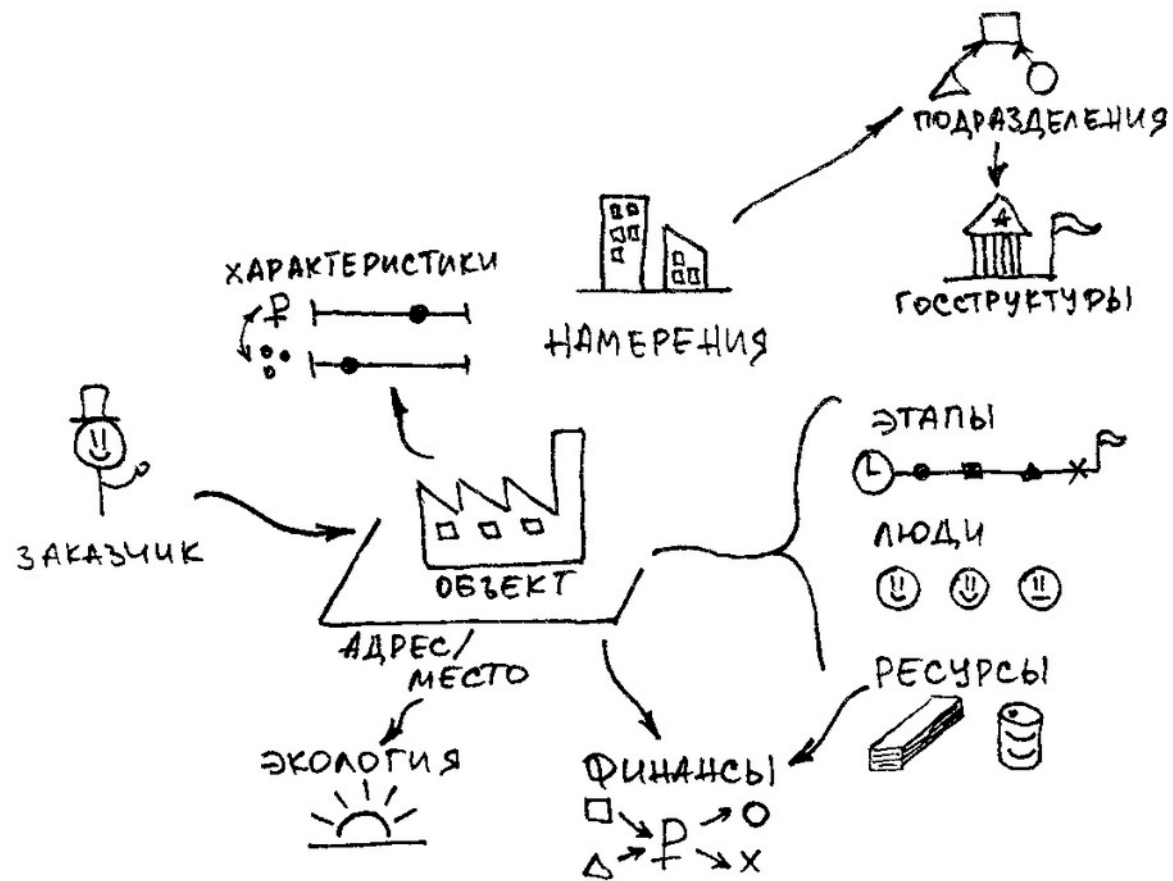 ПОДРАЗДЕЛЕНИЯ
ГОССТРУКТУРЫ
ХАРАКТЕРИСТИКИ
₽
НАМЕРЕНИЯ
ЗАКАЗЧИК
ОБЪЕКТ
АДРЕС/
МЕСТО
ЭТАПЫ
ЛЮДИ
РЕСУРСЫ
ЭКОЛОГИЯ
ФИНАНСЫ
₽